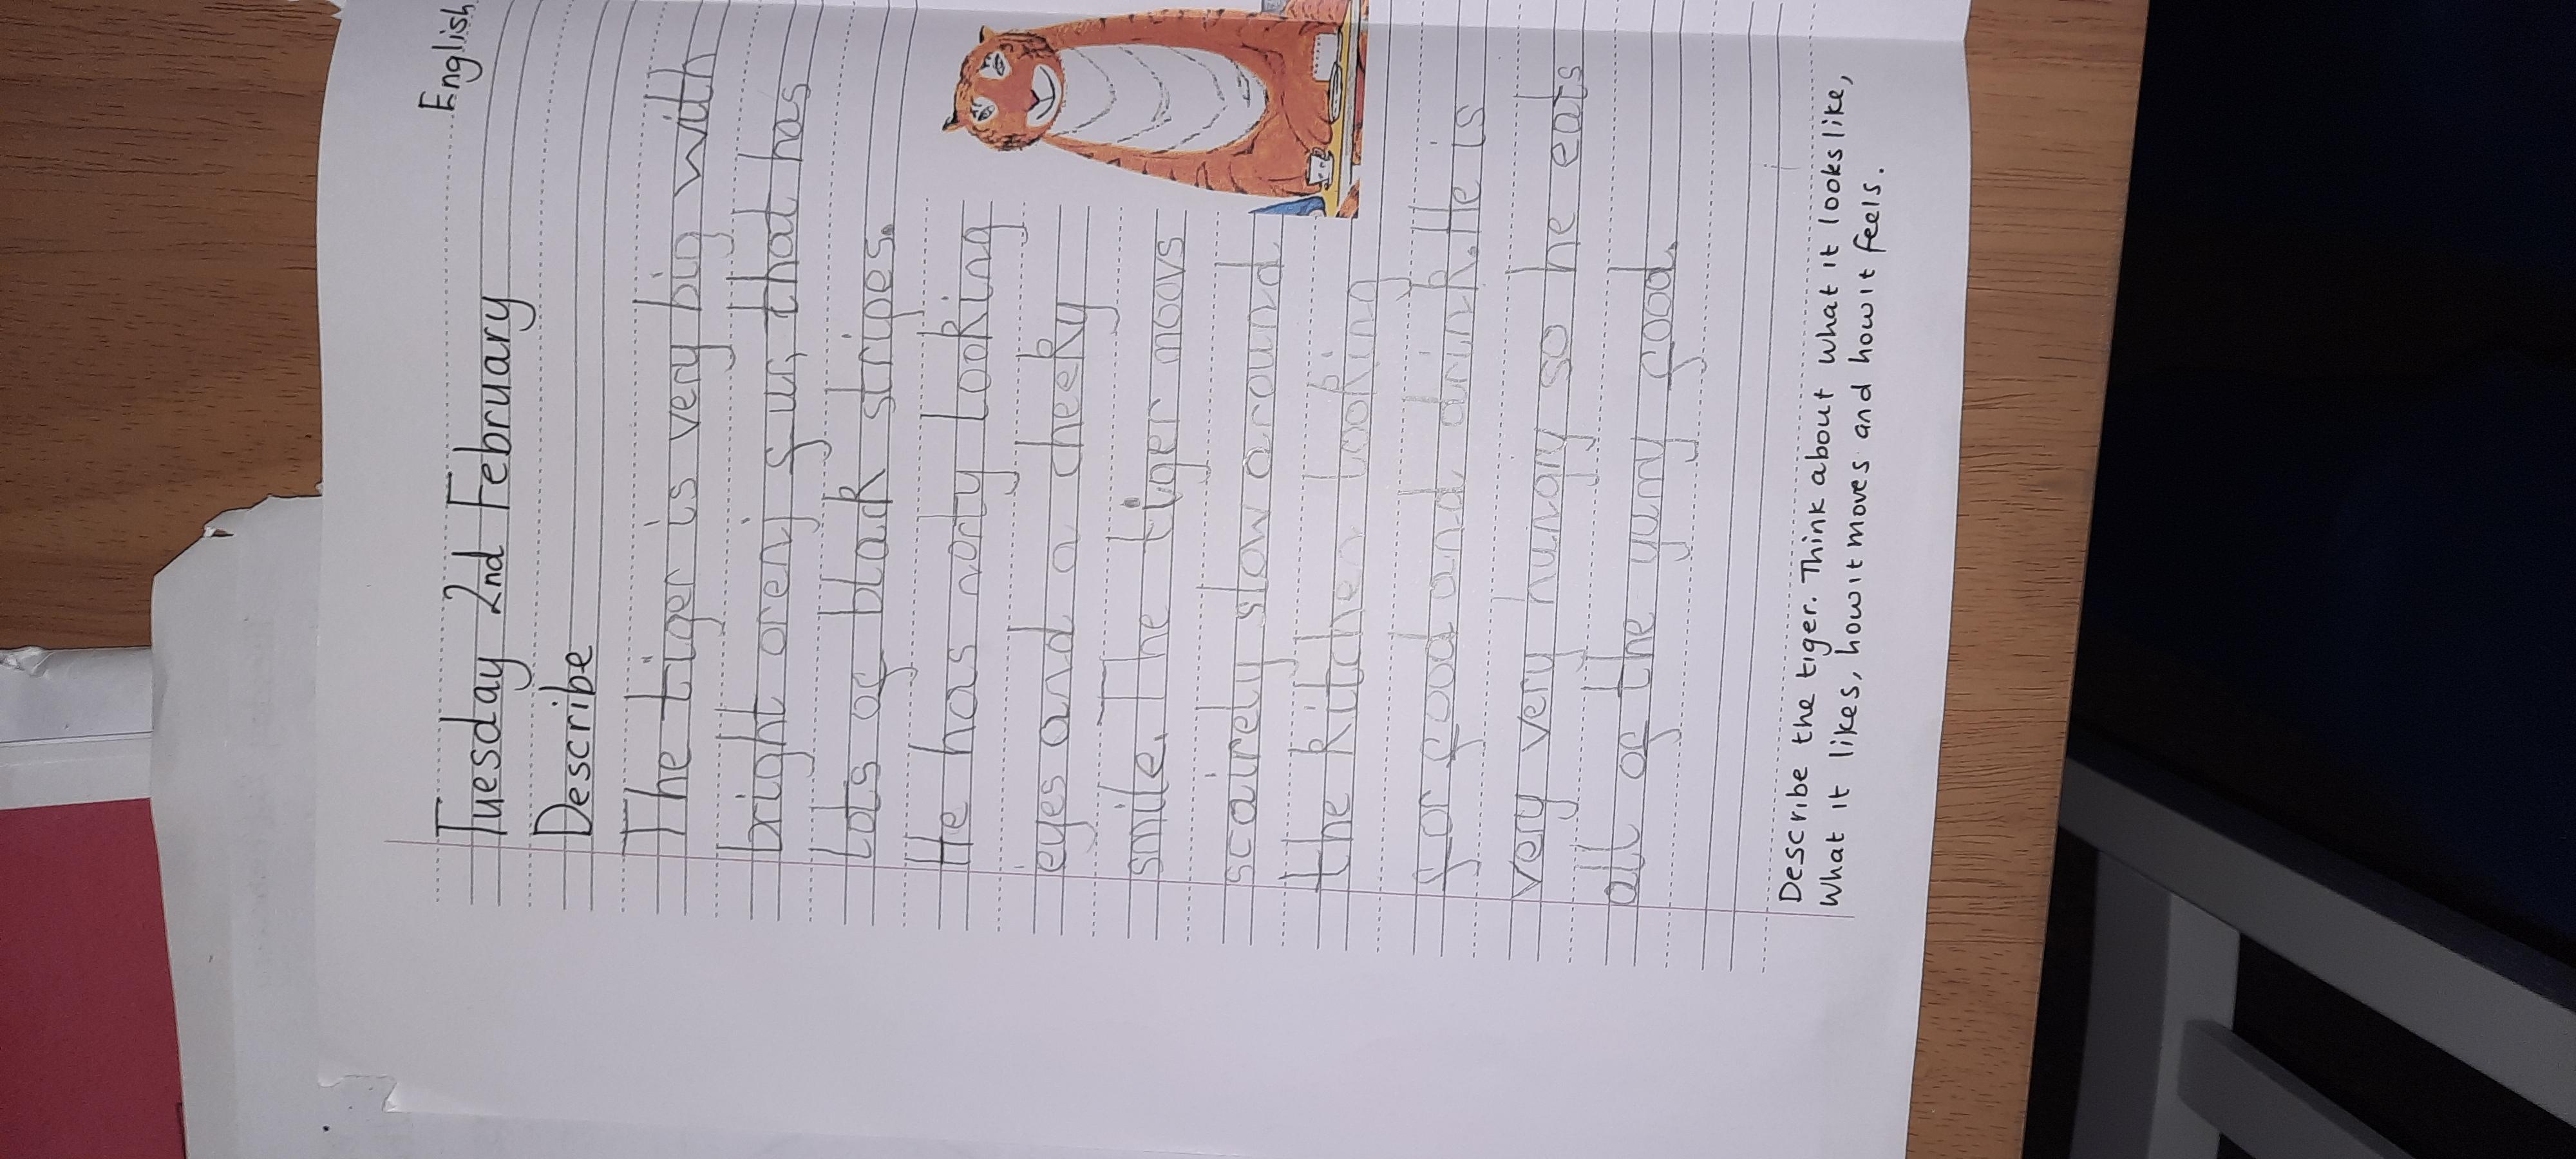 English
Tuesday 2nd February
Describe
The tiger is very big with
bright orenj fur, that has
lots of black stripes.
He has norty looking
eyes and a cheeky
smile. The tiger moovs
scairely slow around
the kitchen looking
for food and drink. He is
very very hungry so he eats
all of the yumy food.
Describe the tiger. Think about what it looks like,
what it likes, how it moves and how it feels.